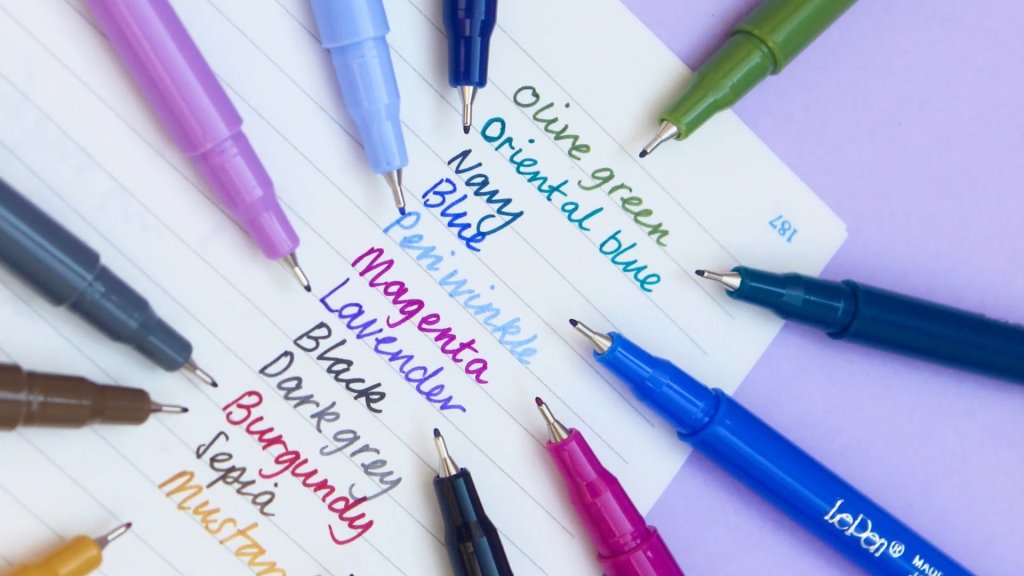 Olive green
Oriental blue
Navy
Blue
Periwinkle
Magenta
Lavender
Black
Dark grey
Burgundy
Sepia
187
LePen®